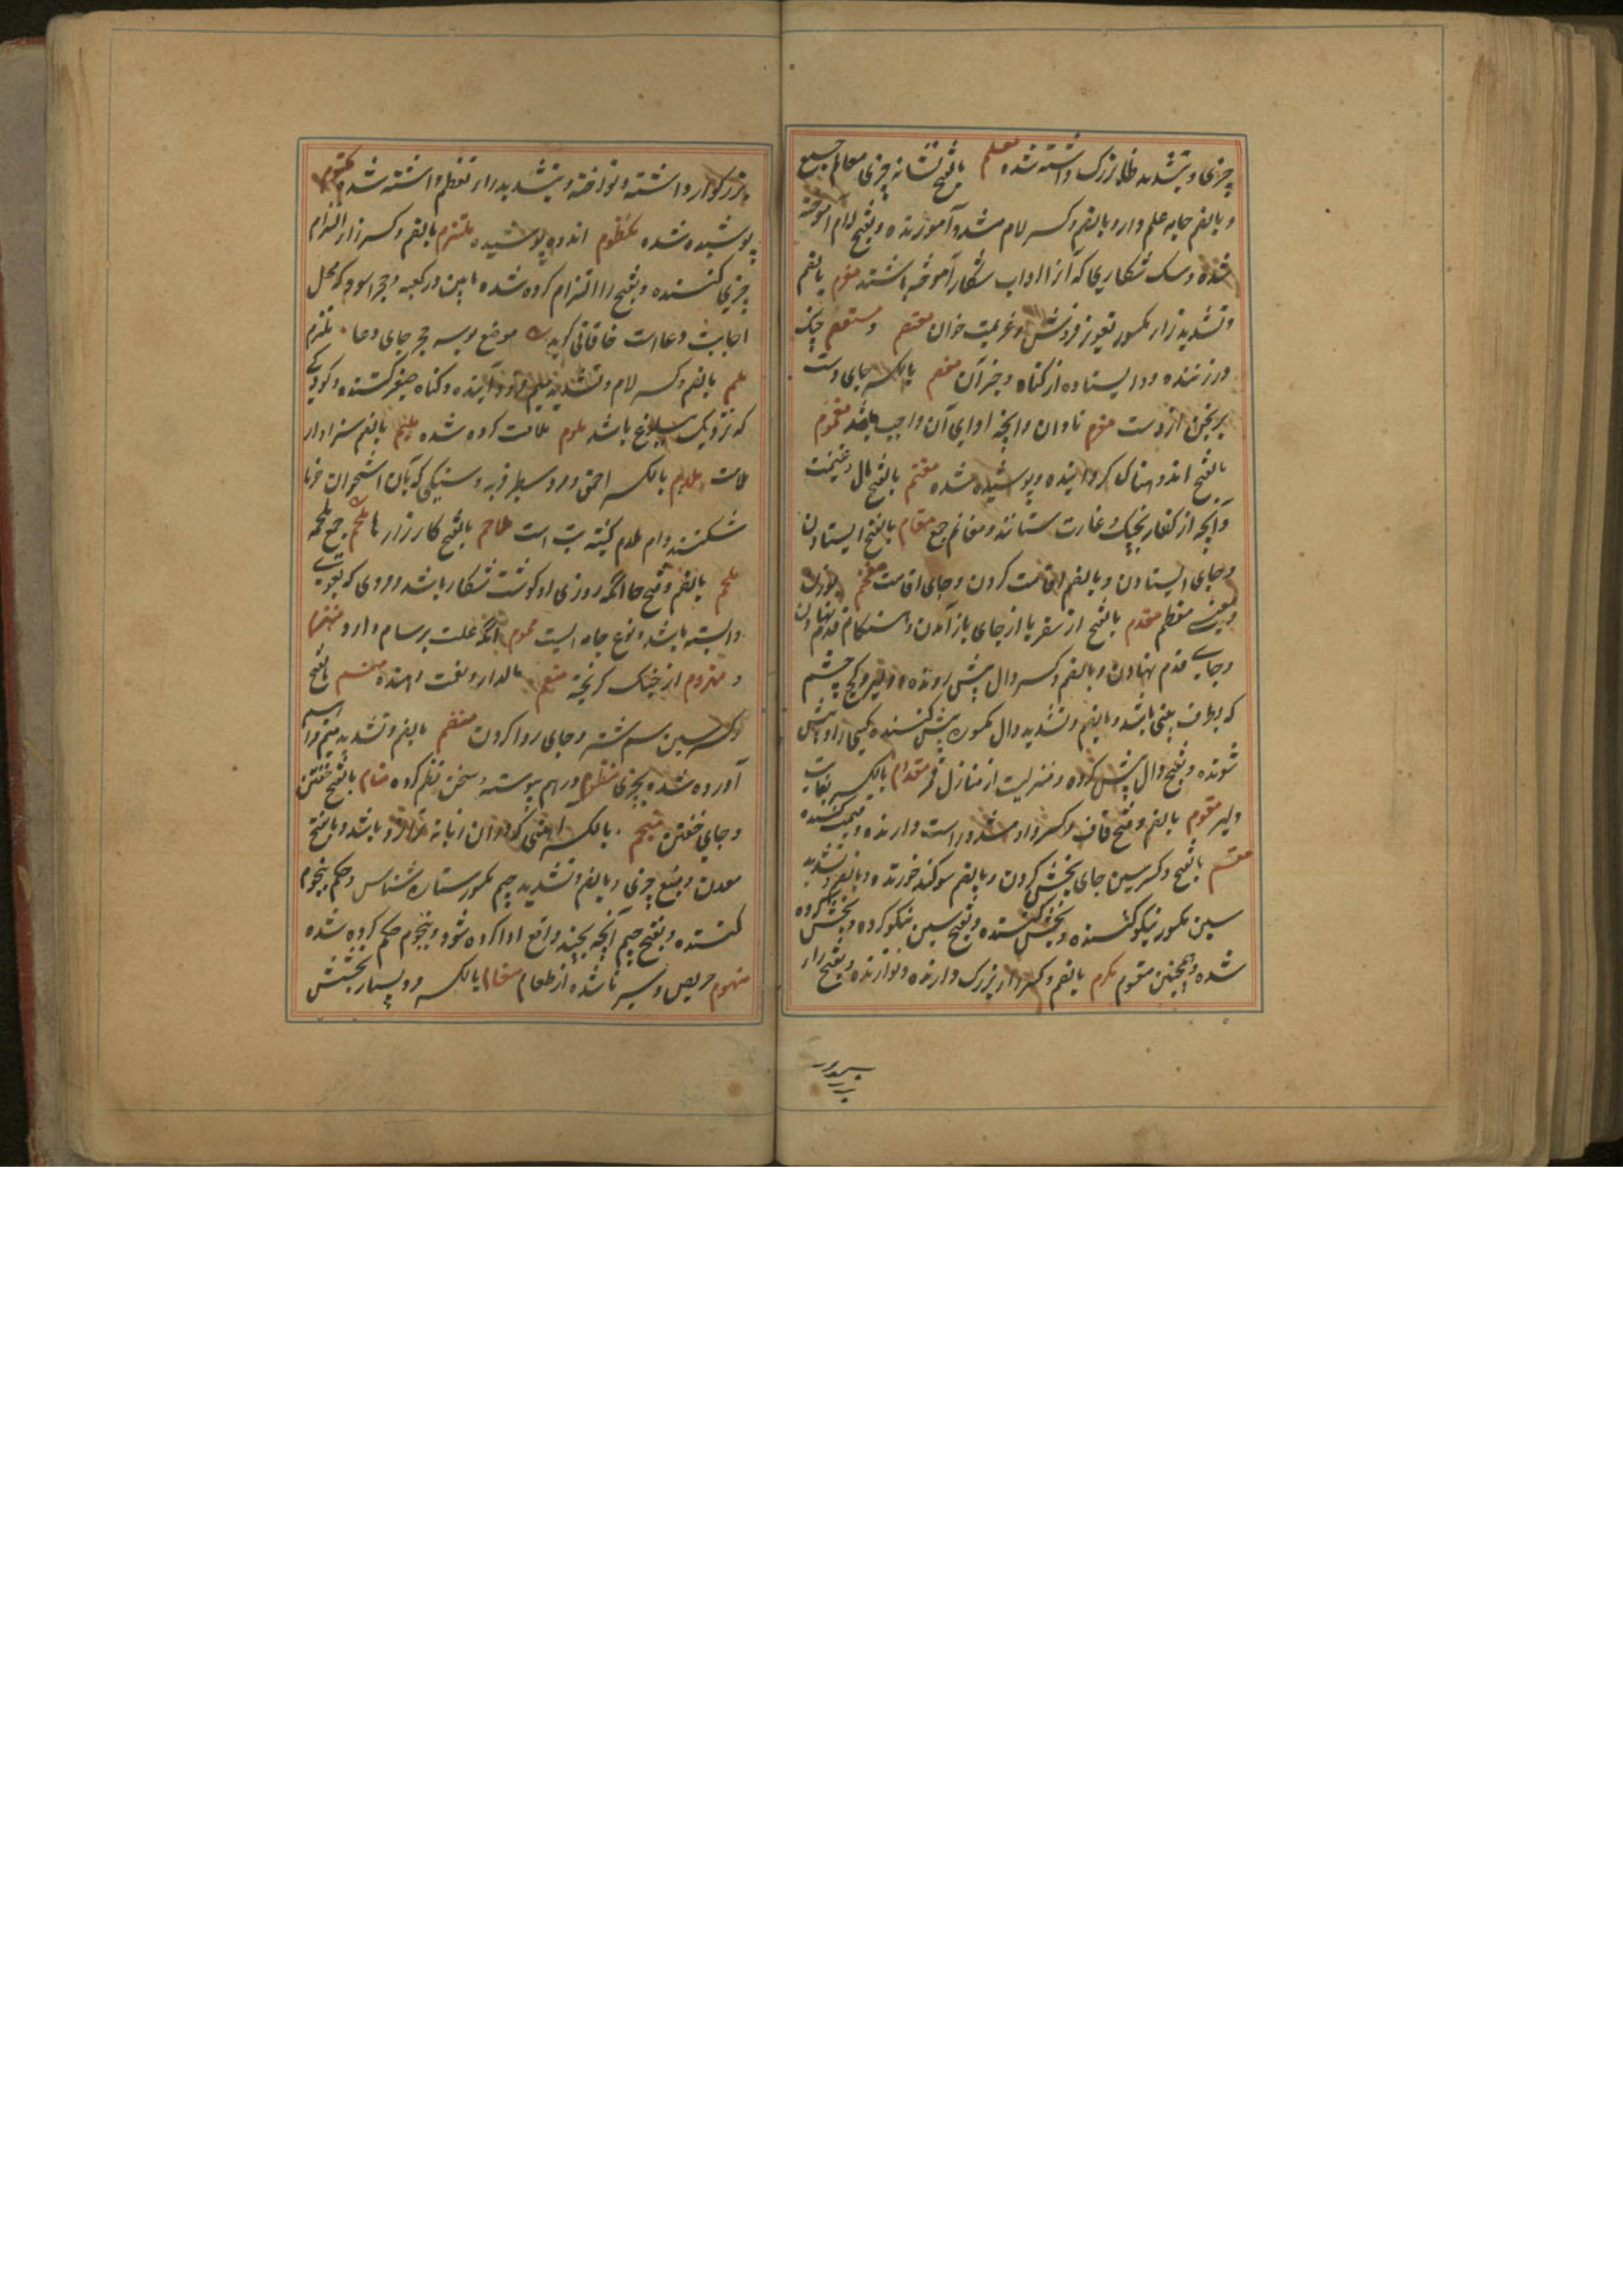 چیزی و بتشدید ظا بزرک داشته شده معلم بالفتح نشانه چیزی معالم جمع
و بالضم جامه علم دار و بالضم و کسر لام مشدد آموزنده و بفتح لام آموخته
شده و سک شکاری که آنرا آداب شکار آموخته باشند معزم بالضم
و تشدید زار مکسور تعویذ فروش و عزیمت خوان معتصم و مستعصم چنک
در زننده و دا ایستاده از کناه و جز آن معصم بالکسر جای دست
برنجن از دست مغرم تاوان و آنچه ادای آن واجب باشد مغموم
بالفتح اندوهناک کردانیده و پوشیده شده مغتنم بالفتح مال و غنیمت
و آنچه از کفار بجنک و غارت ستانند و مغانم جمع مقام بالفتح ایستادن
و جای ایستادن و بالضم اقامت کردن و جای اقامت مفخم
و معنی معظم مقدم بالفتح از سفر یا از جای باز آمدن و هنکام قدم نهادن
و جای قدم نهادن و بالضم و کسر دال پیش رونده و دلیر و کنج چشم
که بطرف بینی باشد و بالضم و تشدید دال مکسور پیش کننده کسی را و پیش
شونده و بفتح دال پیش کرده و منزلیست از منازل قمر مقدام بالکسر بغایت
دلیر مقوم بالضم و فتح قاف و کسر واو مشدد راست دارنده و قیمت کننده
مقسم بالفتح و کسر سین جای بخش کردن و بالضم سوکند خورنده و بالضم و تشدید
سین مکسور نیکو کننده و بخش کننده و بفتح سین نیکو کرده و بخش کرده
شده و همچنین مقسوم مکرم بالضم و کسر را بزرک دارنده و نوازنده و بفتح را
بزرکوار داشته و نواخته و بتشدید را تعظیم داشته شده مکتوم
پوشیده شده مکظوم اندوه پوشیده ملتزم بالضم و کسر زا التزام
چیزی کننده و بفتح زا التزام کرده شده و ما بین در کعبه و حجر اسود که محل
اجابت دعا است خاقانی کوید موضع بوسه حجر جای دعا ملتزم
ملم بالضم و کسر لام و تشدید میم فرود آینده و کناه صغیر کننده و کودکی
که نزدیک ببلوغ باشد ملوم ملامت کرده شده ملیم بالضم سزاوار
ملامت ملدم بالکسر احمق و مرد سطبر فربه و سنکی که بآن استخوان خرما
شکنند و ام ملدم کنیت تب است ملاحم بالفتح کارزارها جمع ملحمه
ملحم بالضم و فتح حا آنکه روزی او کوشت شکار باشد و مردی که بقومی
وابسته باشد و نوع جامه ایست مموم آنکه علت برسام دارد منهزم
و منهزوم از جنک کریخته منعم مالدار و نعمت دهنده منسم بالفتح
و کسر سین سم شتر و جای روا کردن منضم بالضم و تشدید میم فراهم
آورده شده بچیزی منظوم درهم پیوسته و سخن نظم کرده منام بالفتح خفتن
و جای خفتن منجم بالکسر آهنی که در آن زبانه ترازو باشد و بالفتح
معدن و منبع چیزی و بالضم و تشدید جیم مکسور ستاره شناس و حکم بنجوم
کننده و بفتح جیم آنچه بچند دفع ادا کرده شود و بنجوم حکم کرده شده
منهوم حریص و سیر ناشده از طعام منعام بالکسر مرد بسیار بخشش